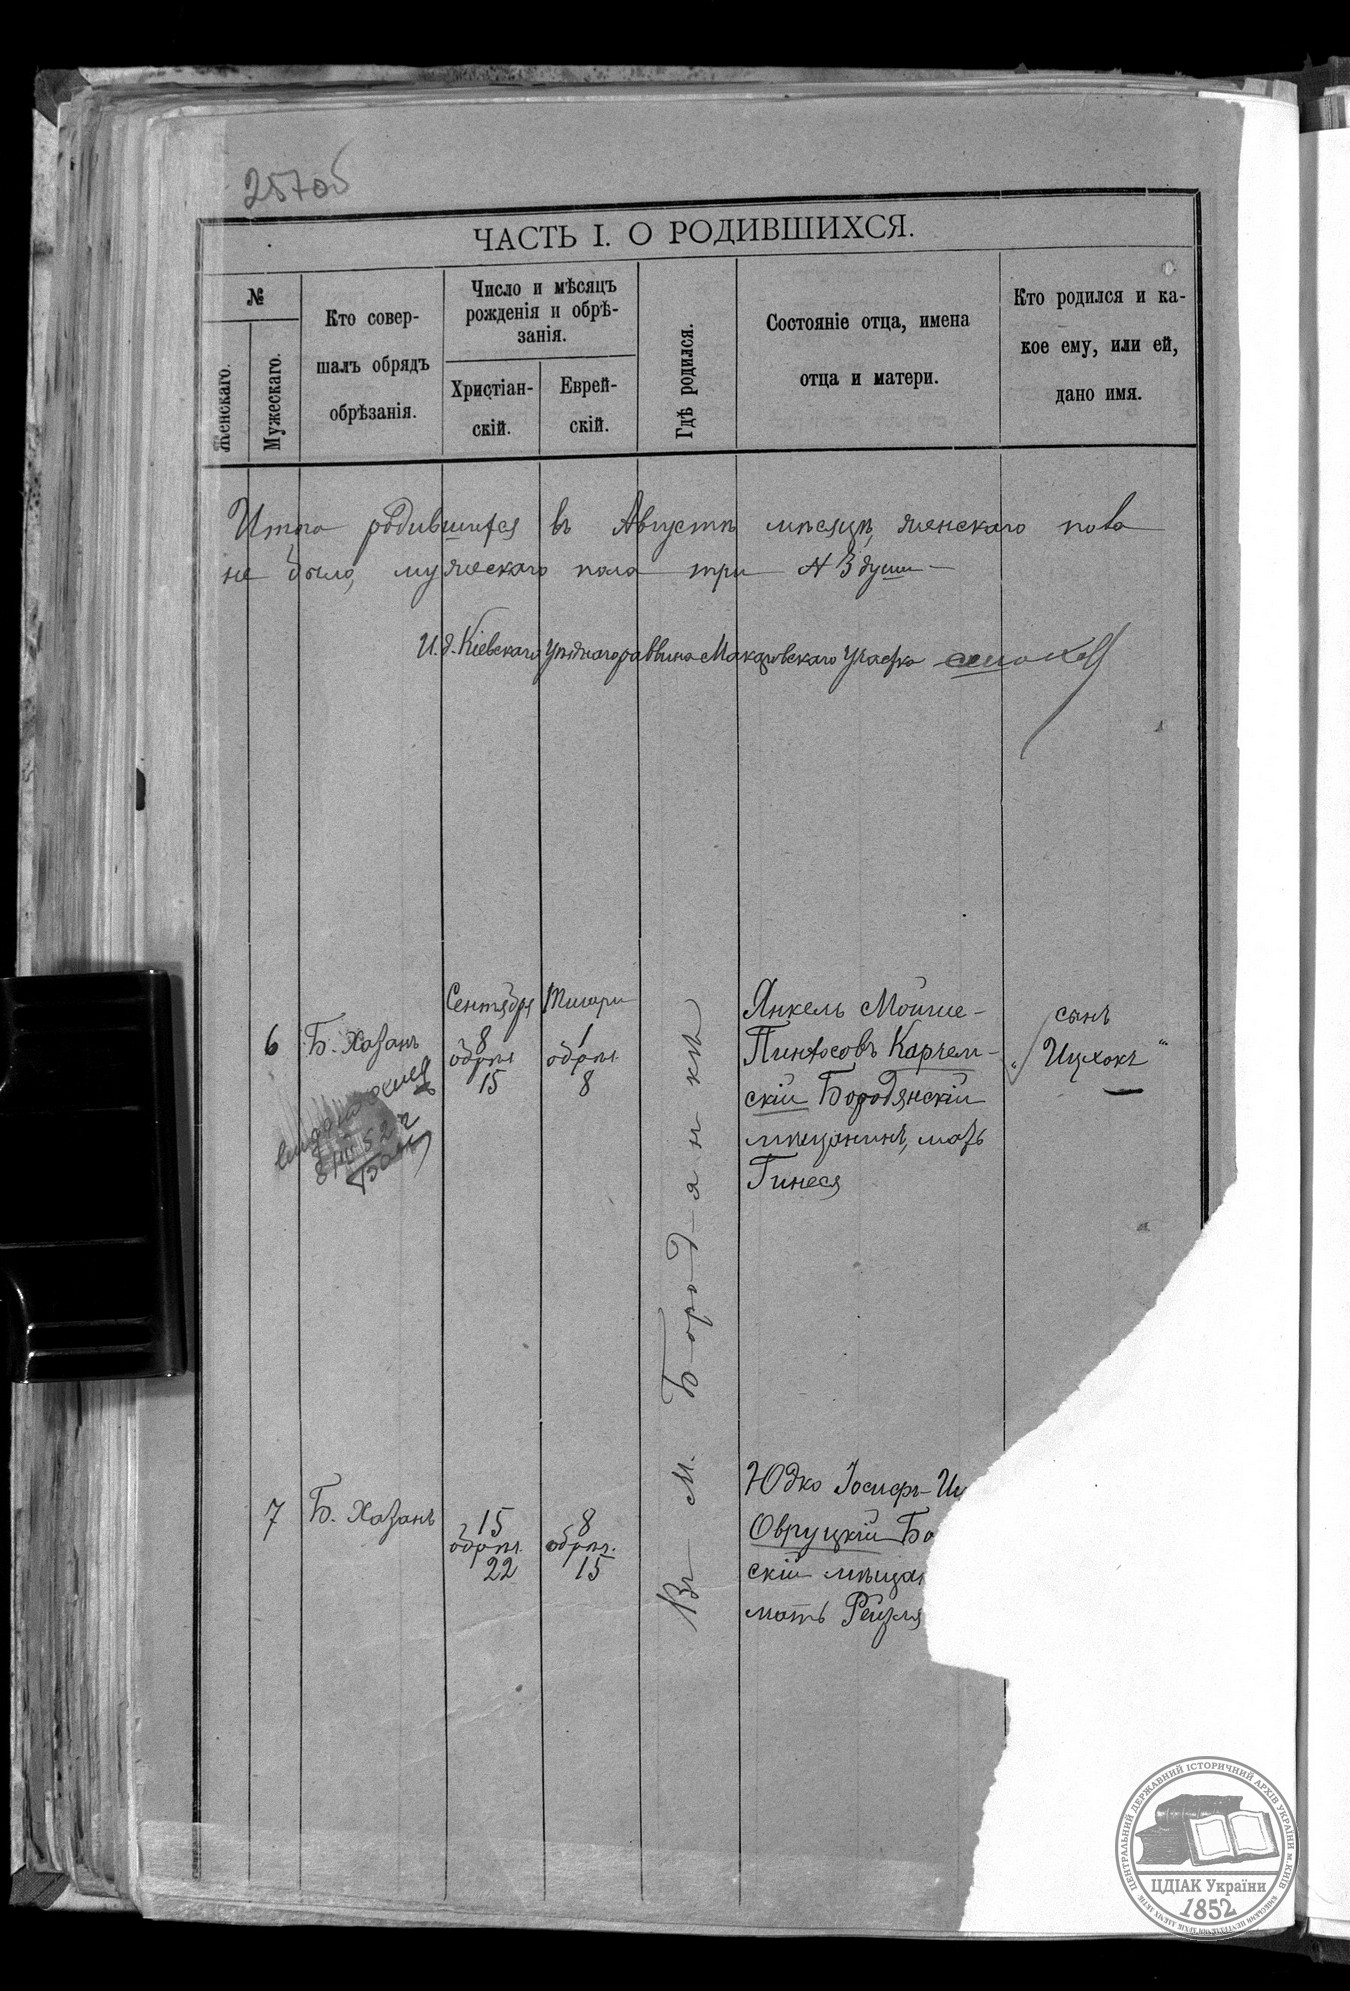 257об
ЧАСТЬ I. О РОДИВШИХСЯ.
№
Женскаго.
Мужескаго.
Кто совер-
шалъ обрядъ
обрѣзанія.
Число и мѣсяцъ
рожденія и обрѣ-
занія.
Христіан-
скій.
Еврей-
скій.
Гдѣ родился.
Состояніе отца, имена
отца и матери.
Кто родился и ка-
кое ему, или ей,
дано имя.
Итого родившихся въ Августѣ мѣсяцѣ, женскаго пола
не было, мужескаго пола три № 3 души
И. д. Кіевскаго Уѣзднаго раввина Макаровскаго Участка
6
Б. Хазанъ
Сентября
8
обрѣз.
15
Тишри
1
обрѣз.
8
Въ М. Бородянкѣ
Янкель Мойше-
Пинхосовъ Карчем-
скій Бородянскій
мѣщанинъ, мать
Гинеся
сынъ
„Ицхокъ“
7
Б. Хазанъ
15
обрѣз.
22
8
обрѣз.
15
Юдко Іосифъ-Иц
Овруцкій Бо
скій мѣщан
мать Рейзля
ЦЕНТРАЛЬНИЙ ДЕРЖАВНИЙ ІСТОРИЧНИЙ АРХІВ УКРАЇНИ м. КИЇВ
ЦДІАК України
1852